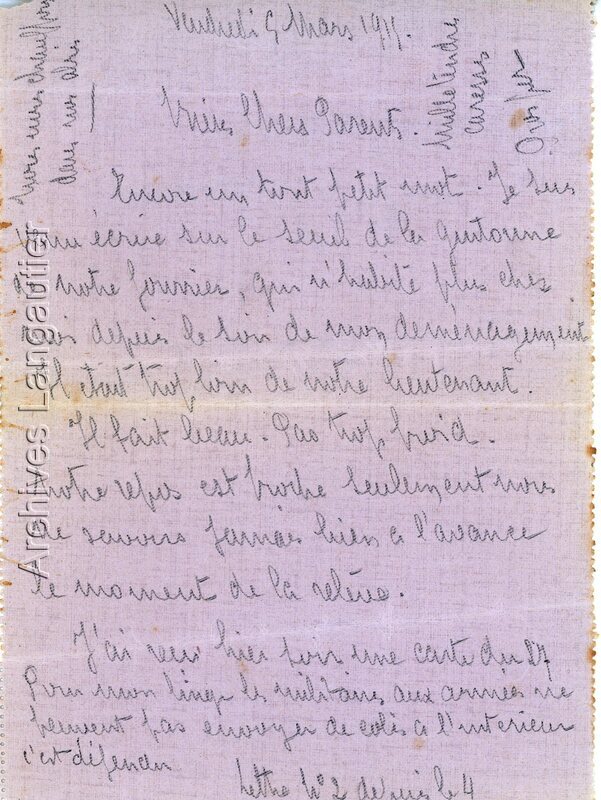 Vendredi 5 Mars 1915.
Mes Chers Parents.
Encore un tout petit mot. Je suis
venu écrire sur le seuil de la guitoune
de notre fourrier, qui n'habite plus chez
moi depuis le soir de mon déménagement
il était trop loin de notre lieutenant.
Il fait beau. Pas trop froid.
notre repos est proche seulement nous
ne savons jamais bien à l'avance
le moment de la relève.
J'ai reçu hier soir une carte du 27
Pour mon linge les militaires aux armées ne
peuvent pas envoyer de colis à l'intérieur
c'est défendu
Lettre N°2 depuis le 4
nous nous chauffons
dans nos abris
mille tendres
caresses
Archives Langautier